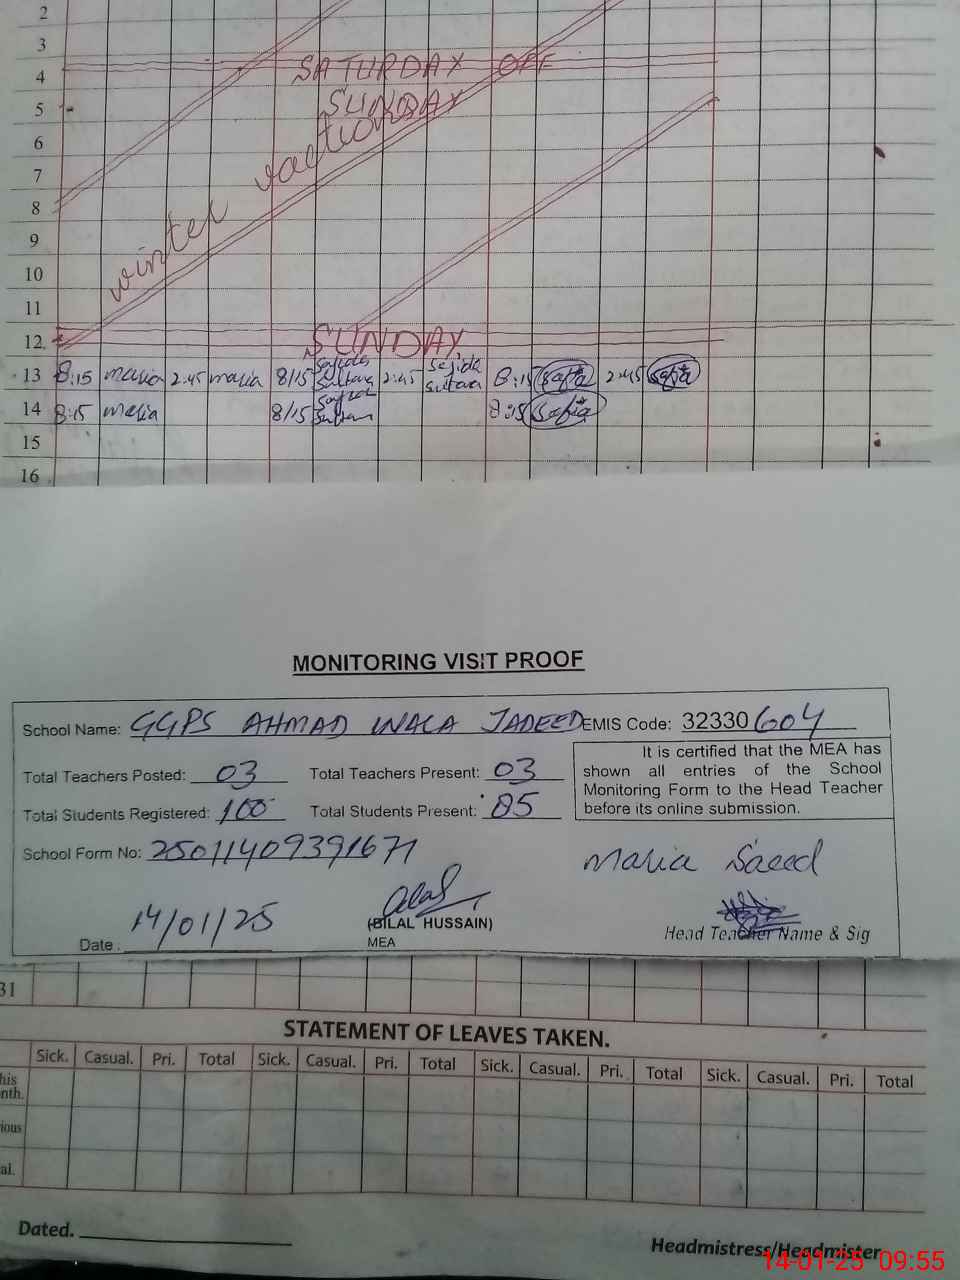 2
3
4 SATURDAY OFF
5 SUNDAY
6
7
8
winter vaction
9
10
11
12 SUNDAY
13 8:15 maria 2:45 maria 8/15 Sajida Sultana 2:45 Sajida Sultana 8:15 Safia 2:45 Safia
14 8:15 maria 8/15 8:15 Safia
15
16
MONITORING VISIT PROOF
School Name: GGPS AHMAD WALA JADEED EMIS Code: 32330604
Total Teachers Posted: 03 Total Teachers Present: 03
Total Students Registered: 100 Total Students Present: 85
It is certified that the MEA has
shown all entries of the School
Monitoring Form to the Head Teacher
before its online submission.
School Form No: 25011409391671
Maria Saeed
Date: 14/01/25
(BILAL HUSSAIN)
MEA
Head Teacher Name & Sig
31
STATEMENT OF LEAVES TAKEN.
Sick. Casual. Pri. Total Sick. Casual. Pri. Total Sick. Casual. Pri. Total Sick. Casual. Pri. Total
his
nth.
ious
al.
Dated.
Headmistress/Headmister
14-01-25 09:55